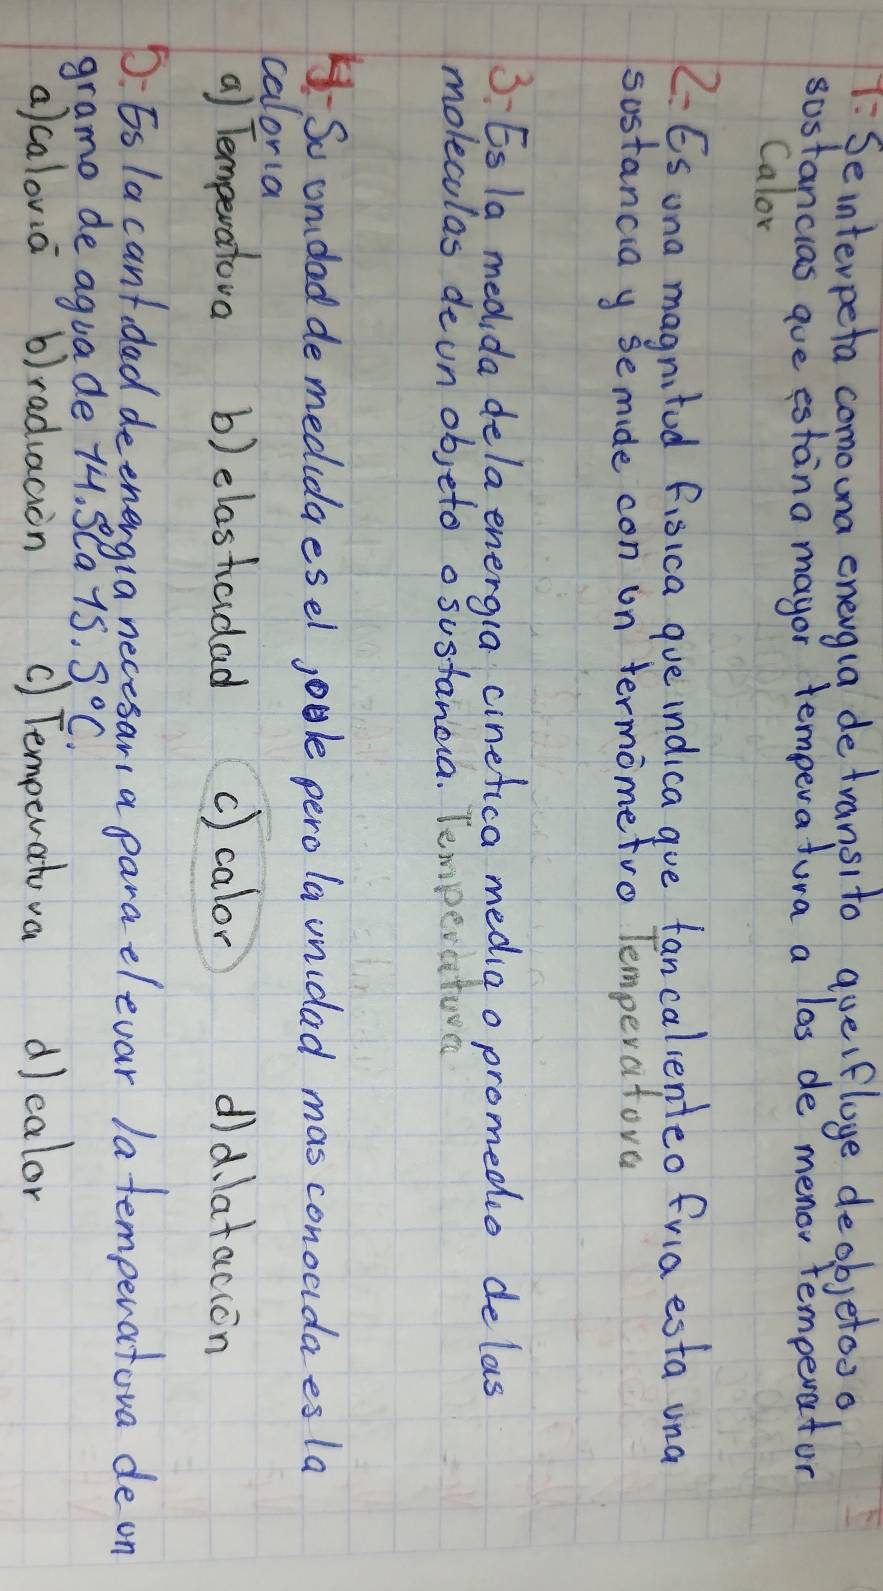 1.- Se interpeta como una energia de transito que ifluye de objetos o
sustancias que estàn a mayor temperatura a los de menor temperatur
Calor
2.- Es una magnitud fisica que indica que tan caliente o fria esta una
sustancia y se mide con un termòmetro Temperatura
3.- Es la medida de la energia cinetica media o promedio de las
moleculas de un objeto o sustancia. Temperatura
4.- Su unidad de medida es el joule pero la unidad mas conocida es la
caloria
a) Temperatura b) elasticidad c) calor d) dilatación
5.- Es la cantidad de energia necesaria para elevar la temperatura de un
gramo de agua de 14.5°C a 15.5°C.
a) caloria b) radiaciòn c) Temperatura d) calor